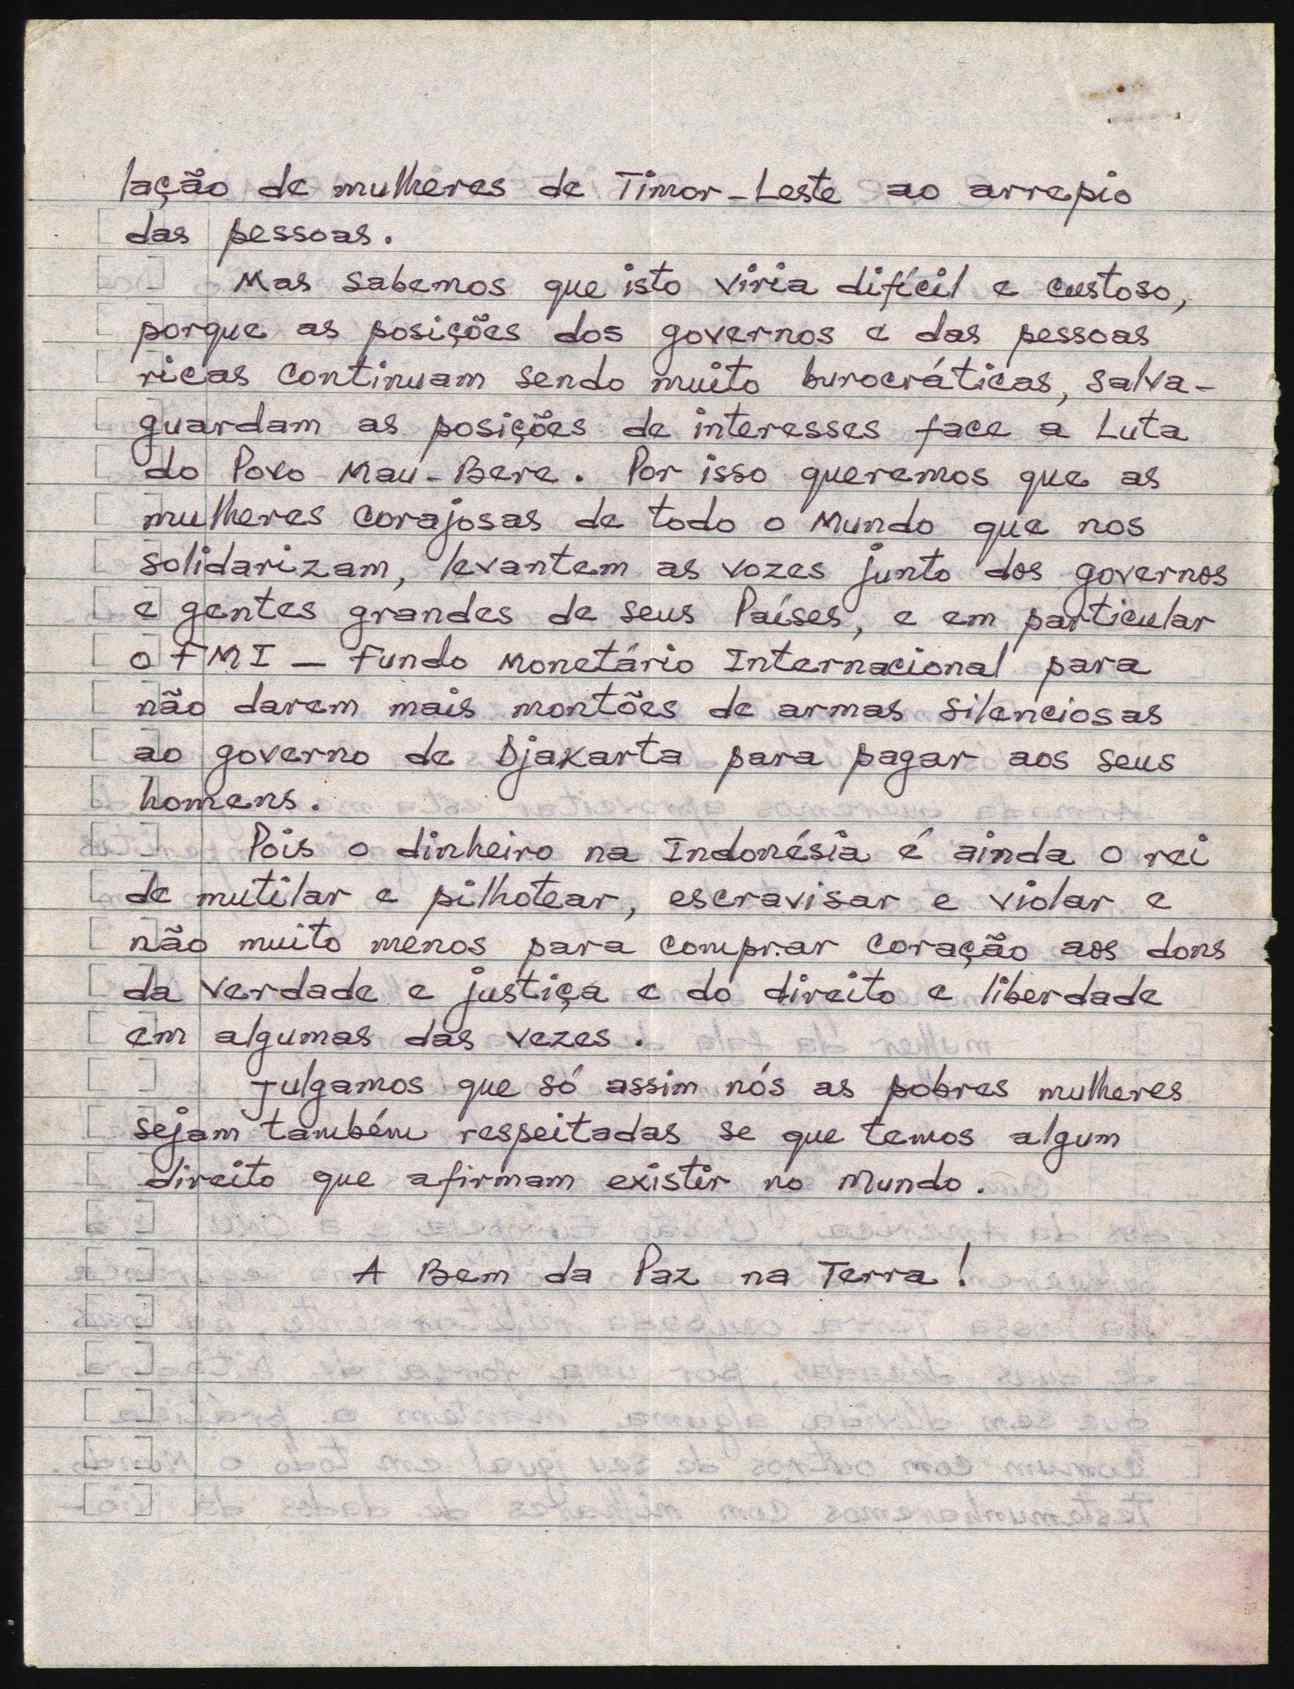 lação de mulheres de Timor-Leste ao arrepio
das pessoas.
Mas sabemos que isto viria difícil e custoso,
porque as posições dos governos e das pessoas
ricas continuam sendo muito burocráticas, salva-
guardam as posições de interesses face a Luta
do Povo Mau-Bere. Por isso queremos que as
mulheres corajosas de todo o Mundo que nos
solidarizam, levantem as vozes junto dos governos
e gentes grandes de seus Países, e em particular
o FMI — Fundo Monetário Internacional para
não darem mais montões de armas silenciosas
ao governo de Djakarta para pagar aos seus
homens.
Pois o dinheiro na Indonésia é ainda o rei
de mutilar e pilhotear, escravisar e violar e
não muito menos para comprar coração aos dons
da verdade e justiça e do direito e liberdade
em algumas das vezes.
Julgamos que só assim nós as pobres mulheres
sejam também respeitadas se que temos algum
direito que afirmam existir no Mundo.
A Bem da Paz na Terra!